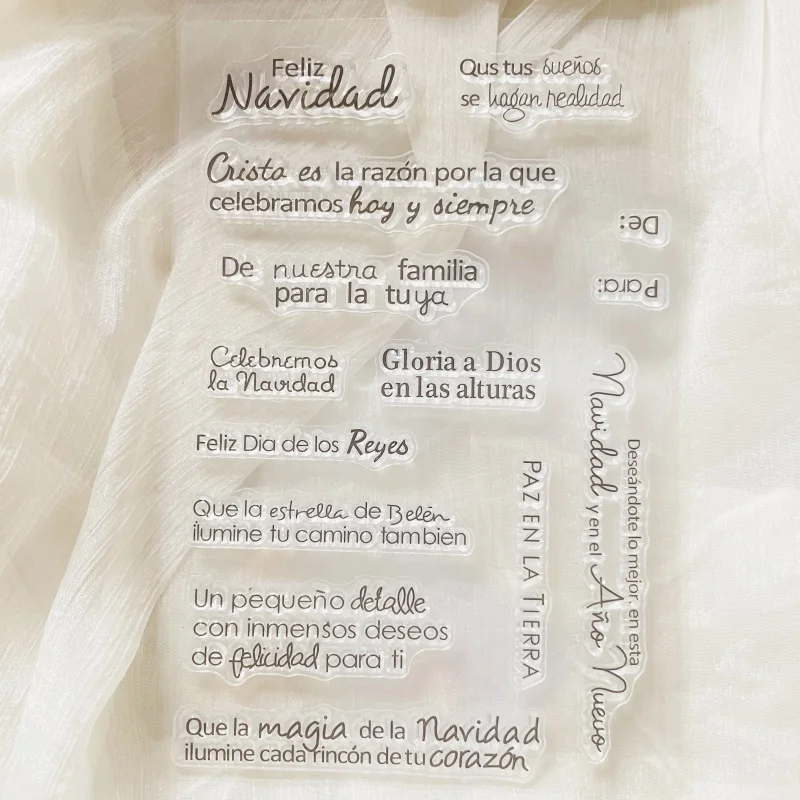 Feliz
Navidad
Qus tus sueños
se hagan realidad
Cristo es la razón por la que
celebramos hoy y siempre
De:
Para:
De nuestra familia
para la tuya
Celebremos
la Navidad
Gloria a Dios
en las alturas
Feliz Dia de los Reyes
Que la estrella de Belén
ilumine tu camino tambien
PAZ EN LA TIERRA
Deseándote lo mejor, en esta
Navidad y en el Año Nuevo
Un pequeño detalle
con inmensos deseos
de felicidad para ti
Que la magia de la Navidad
ilumine cada rincón de tu corazón